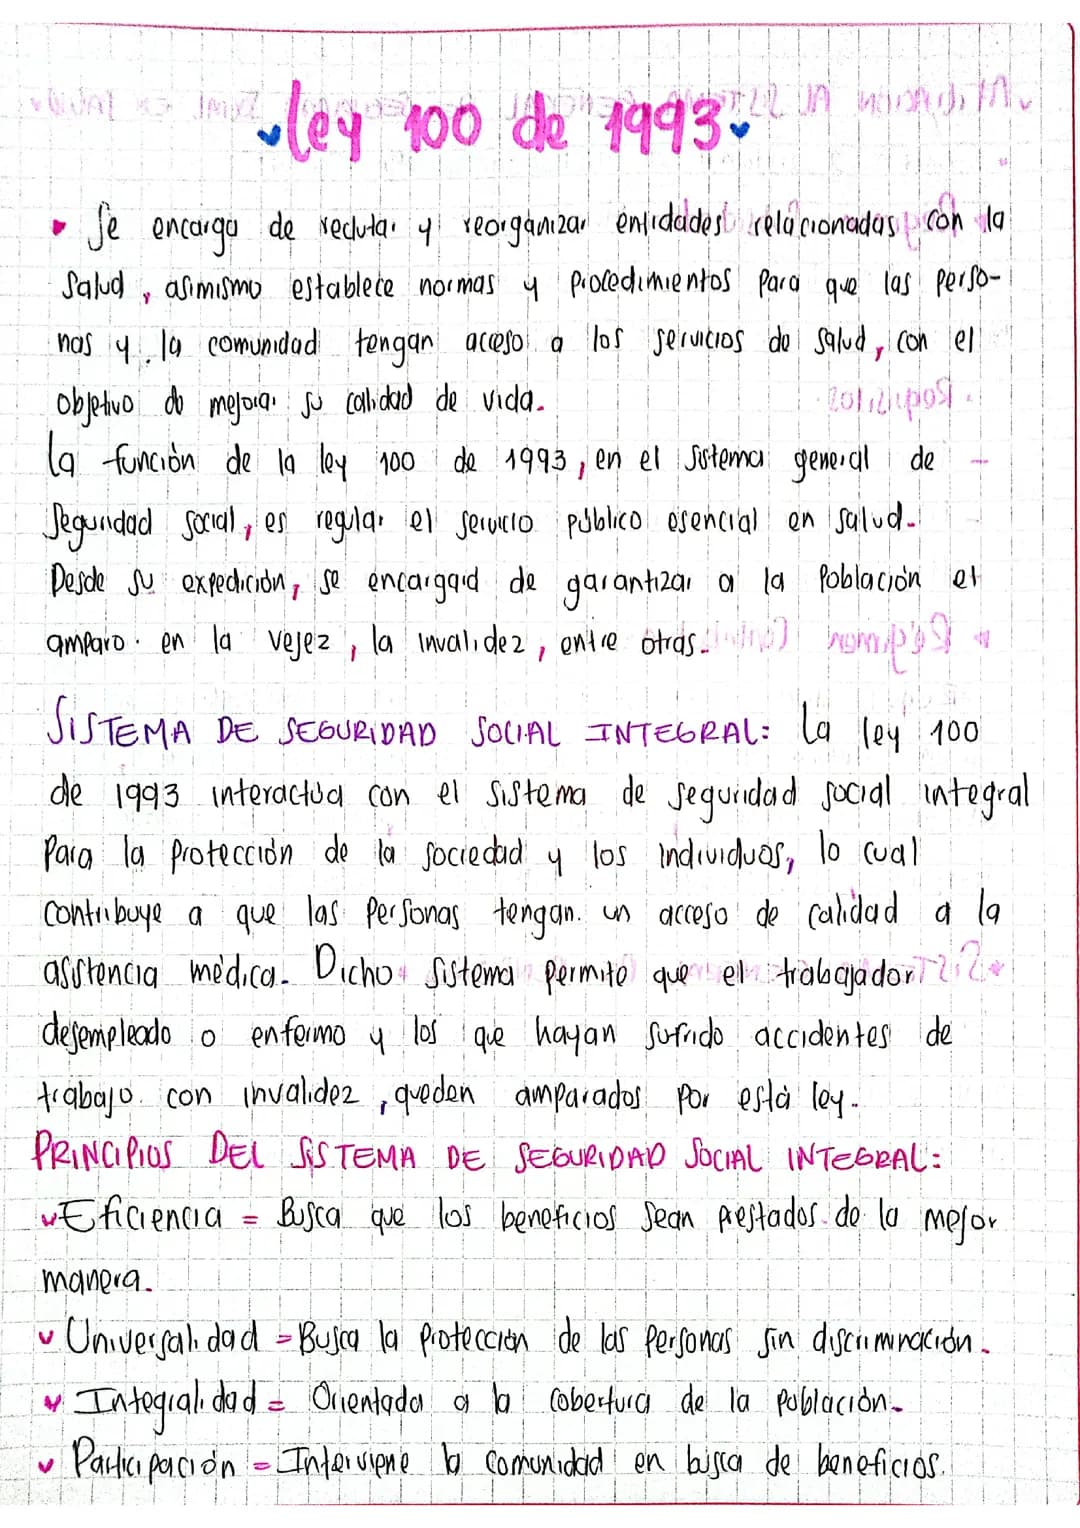 ley 100 de 1993
Se encarga de reclutar y reorganizar entidades relacionadas con la
Salud, asimismo establece normas y procedimientos para que las perso-
nas y la comunidad tengan acceso a los servicios de salud, con el
objetivo de mejorar su calidad de vida.
La función de la ley 100 de 1993, en el Sistema general de
Seguridad social, es regular el servicio público esencial en salud.
Desde su expedición, se encargará de garantizar a la Población el
amparo en la vejez, la invalidez, entre otras.
SISTEMA DE SEGURIDAD SOCIAL INTEGRAL: La ley 100
de 1993 interactúa con el sistema de seguridad social integral
Para la Protección de la sociedad y los individuos, lo cual
contribuye a que las Personas tengan un acceso de calidad a la
asistencia médica. Dicho sistema permite que el trabajador
desempleado o enfermo y los que hayan sufrido accidentes de
trabajo con invalidez, queden amparados por está ley.
PRINCIPIOS DEL SISTEMA DE SEGURIDAD SOCIAL INTEGRAL:
Eficiencia = Busca que los beneficios sean prestados de la mejor
manera.
Universalidad = Busca la protección de las Personas sin discriminación.
Integralidad = Orientada a la cobertura de la población.
Participación = Interviene la comunidad en busca de beneficios.